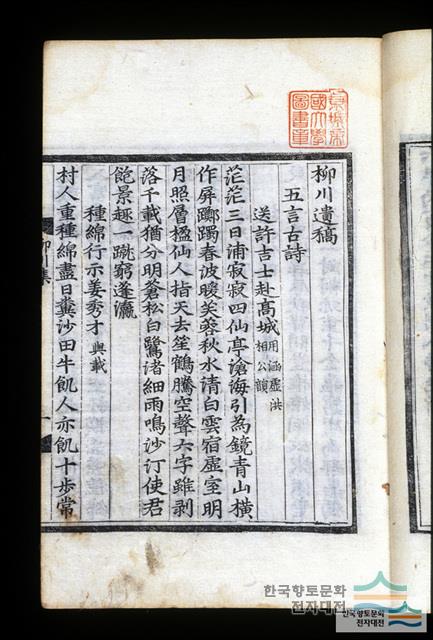 柳川遺稿
五言古詩
送許吉士赴高城用涵虛洪相公韻
茫茫三日浦寂寂四仙亭滄海引為鏡青山橫
作屏躑躅春波暖芙蓉秋水清白雲宿虛室明
月照層楹仙人指天去笙鶴騰空聲六字雖剥
落千載猶分明蒼松白鷺渚細雨鳴沙汀使君
飽景趣一蹴窮蓬瀛
種綿行示姜秀才與載
村人重種綿盡日糞沙田牛飢人亦飢十步常
柳川集
一
京城帝
國大學
圖書章
한국향토문화
전자대전
한국향토문화
전자대전